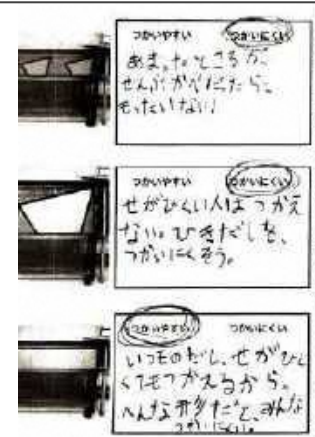 つかいやすい つかいにくい
あまったところが、
ぜんぶかべだったら、
もったいない！
つかいやすい つかいにくい
せがひくい人はつかえ
ない。ひきだしを、
つかいにくそう。
つかいやすい つかいにくい
いつものだし、せがひく
くてもつかえるから。
へんな形だと、みんな
つかいにくい。